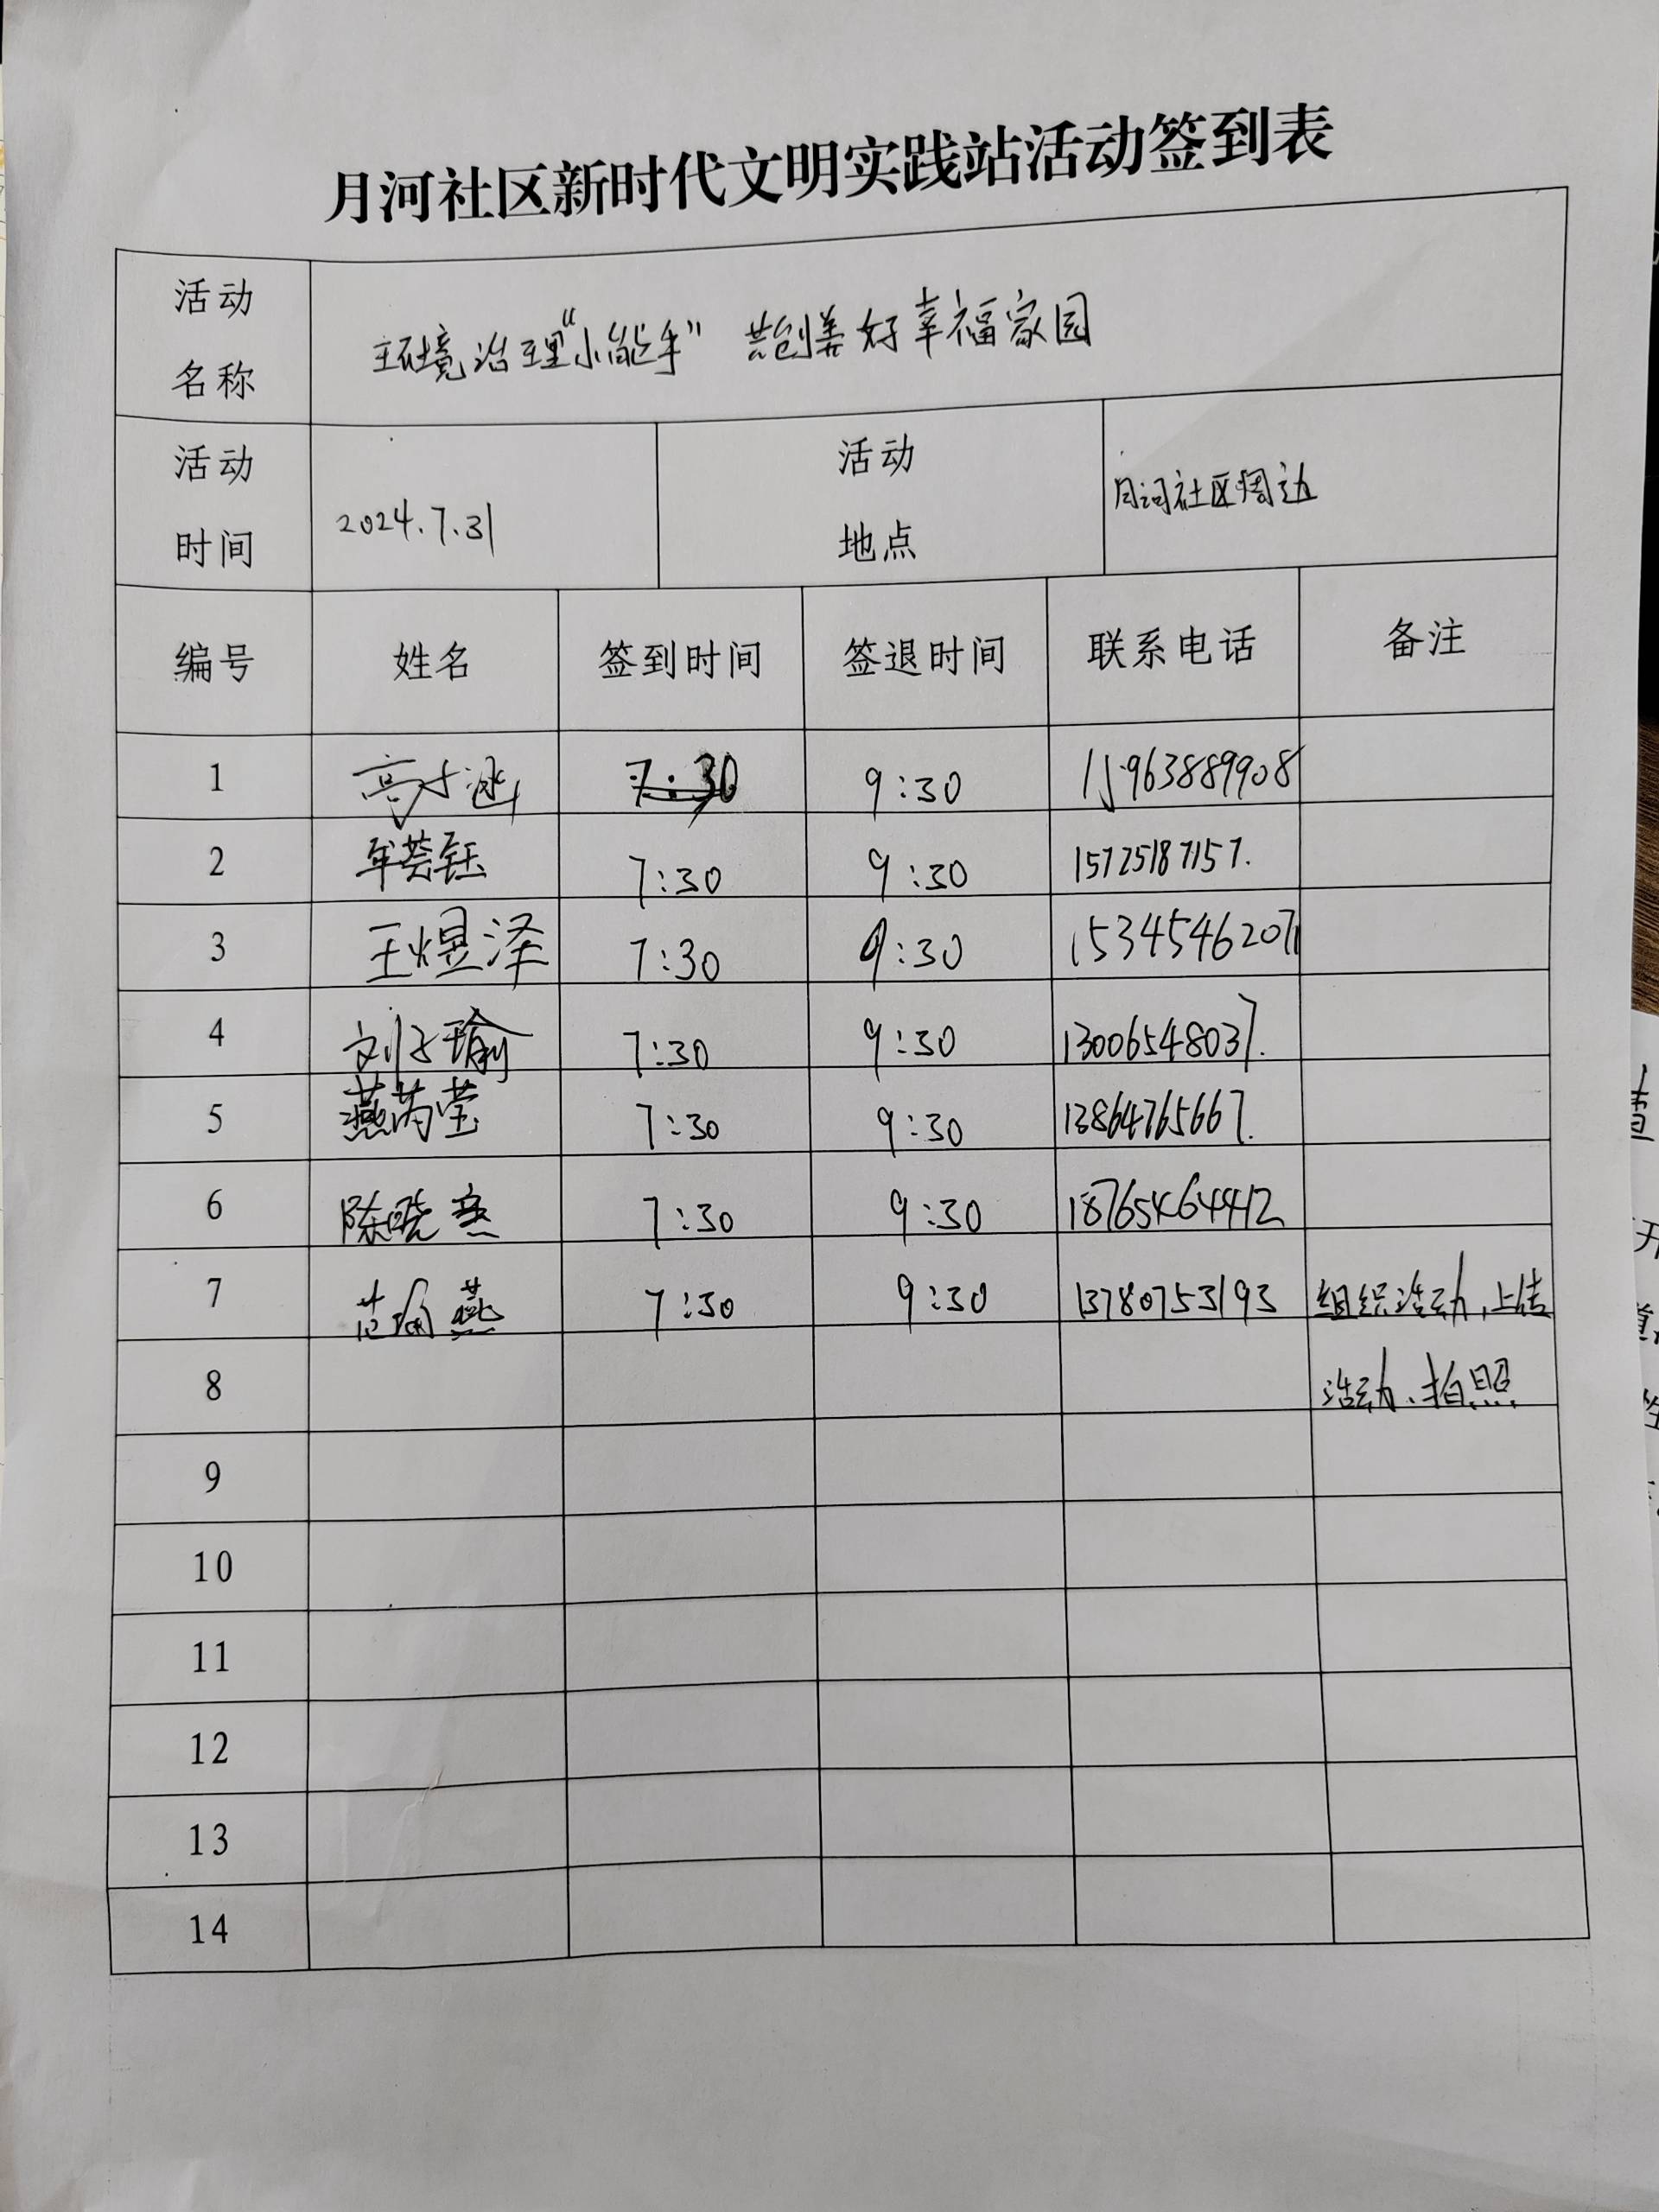 月河社区新时代文明实践站活动签到表
活动名称 环境治理“小能手” 共创美好幸福家园
活动时间 2024.7.31 活动地点 月河社区周边
编号 姓名 签到时间 签退时间 联系电话 备注
1 高 涵 7:30 9:30 15963889908
2 牟芸钰 7:30 9:30 15725187157.
3 王煜泽 7:30 9:30 15345462071
4 刘子瑜 7:30 9:30 13006548037.
5 燕芮莹 7:30 9:30 13864765667.
6 陈晓 7:30 9:30 18765464412
7 燕 7:30 9:30 13780753193 组织活动,上传
8 活动、拍照
9
10
11
12
13
14